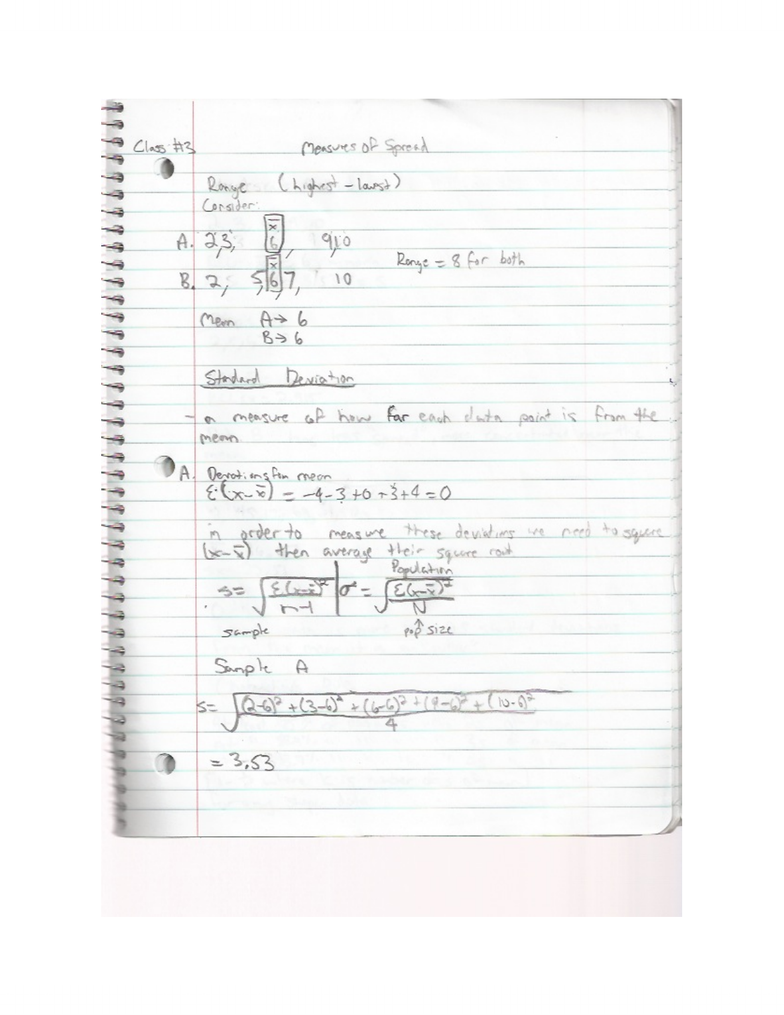 Class #3 Measures of Spread
Range (highest - lowest)
Consider:
A. 2, 3, x̄ 6, 9, 10
Range = 8 for both
B. 2, 5, x̄ 6, 7, 10
Mean A → 6
B → 6
Standard Deviation
- a measure of how far each data point is from the
mean
A. Deviations from mean
Σ(x-x̄) = -4-3+0+3+4=0
in order to measure these deviations we need to square
(x-x̄) then average their square root
Population
s= √(Σ(x-x̄)²/n-1) | σ = √(Σ(x-x̄)²/N)
sample pop size
Sample A
s= √((2-6)²+(3-6)²+(6-6)²+(9-6)²+(10-6)²/4)
= 3.53